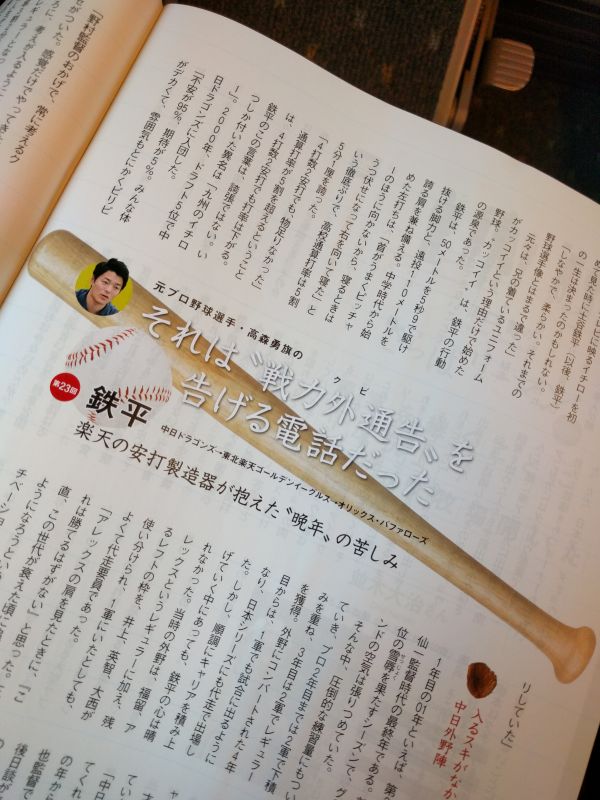 「野村監督のおかげで、常に考えるク
セがついた。感覚だけでやってき
の一生は決まったのかもしれない。
「しなやかで、柔らかい。それまでの
野球選手像とはまるで違った」
元々は、兄の着ているユニフォーム
がカッコイイという理由だけで始めた
野球。"カッコイイ"は、鉄平の行動
の源泉であった。
鉄平は、50メートルを5秒8で駆け
抜ける脚力と、遠投110メートルを
誇る肩を兼ね備える。中学時代から始
めた左打ちは、「首がうまくピッチャ
ーのほうに向かないから、寝るときは
うつ伏せになって右を向いて寝た」と
いう徹底ぶりで、高校通算打率は5割
5分1厘を誇った。
「4打数2安打でも、物足りなかった」
通算打率が5割を超えるということ
は、4打数2安打でも打率は下がる。
鉄平のこの言葉は、誇張ではない。い
つしか付いた異名は「九州のイチロ
ー」。2000年、ドラフト5位で中
日ドラゴンズに入団した。
「不安が95%、期待が5%。みんな体
がデカくて、雰囲気もとにかくピリピ
元プロ野球選手・高森勇旗の
それは"戦力外通告"を
クビ
告げる電話だった
第23回
鉄平
中日ドラゴンズ→東北楽天ゴールデンイーグルス→オリックス・バファローズ
楽天の安打製造器が抱えた"晩年"の苦しみ
リしていた」
入るスキがなか
中日外野陣
1年目の01年といえば、第
仙一監督時代の最終年である。
位の雪辱を果たすシーズンで、
ンドの空気は張りつめていた。
そんな中、圧倒的な練習量にもつい
ていき、プロ2年目までは2軍で下積
みを重ね、3年目は2軍でレギュラー
を獲得。外野にコンバートされた4年
目からは、1軍でも試合に出るように
なり、日本シリーズにも代走で出場し
た。しかし、順調にキャリアを積み上
げていく中にあっても、鉄平の心は晴
れなかった。当時の外野は、福留、ア
レックスというレギュラーに加え、残
るレフトの枠を、井上、英智、大西が
使い分けられ、1軍にいたとしても、
よくて代走要員であった。
「アレックスの肩を見たときに、『こ
れは勝てるはずがない』と思った。
直、この世代が衰えた頃に
ようになろうという
チベーショ